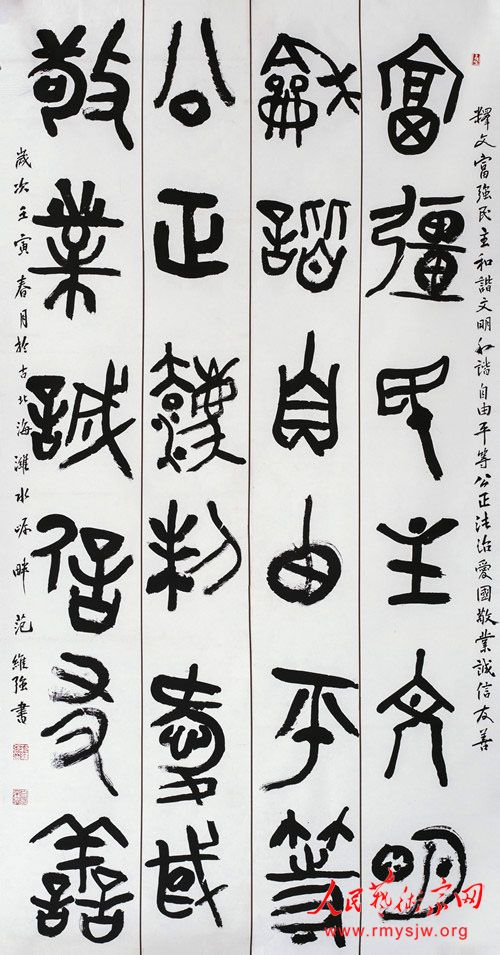 釋文富強民主和諧文明和諧自由平等公正法治愛國敬業誠信友善
富彊民主文明
龢諧自由平等
公正灋治愛國
敬業誠信友善
歲次壬寅春月於古北海濰水畔范維強書
人民藝術家网
www.rmysjw.org